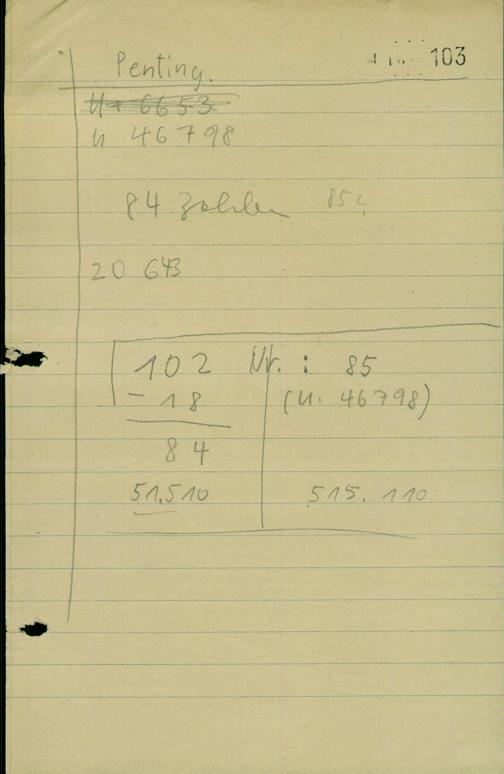 103
Penting.
U+ 6653
U 46798
84 Zahlen 852
20 643
102 Nr. : 85
- 18 (U. 46798)
84
51.510 515. 110